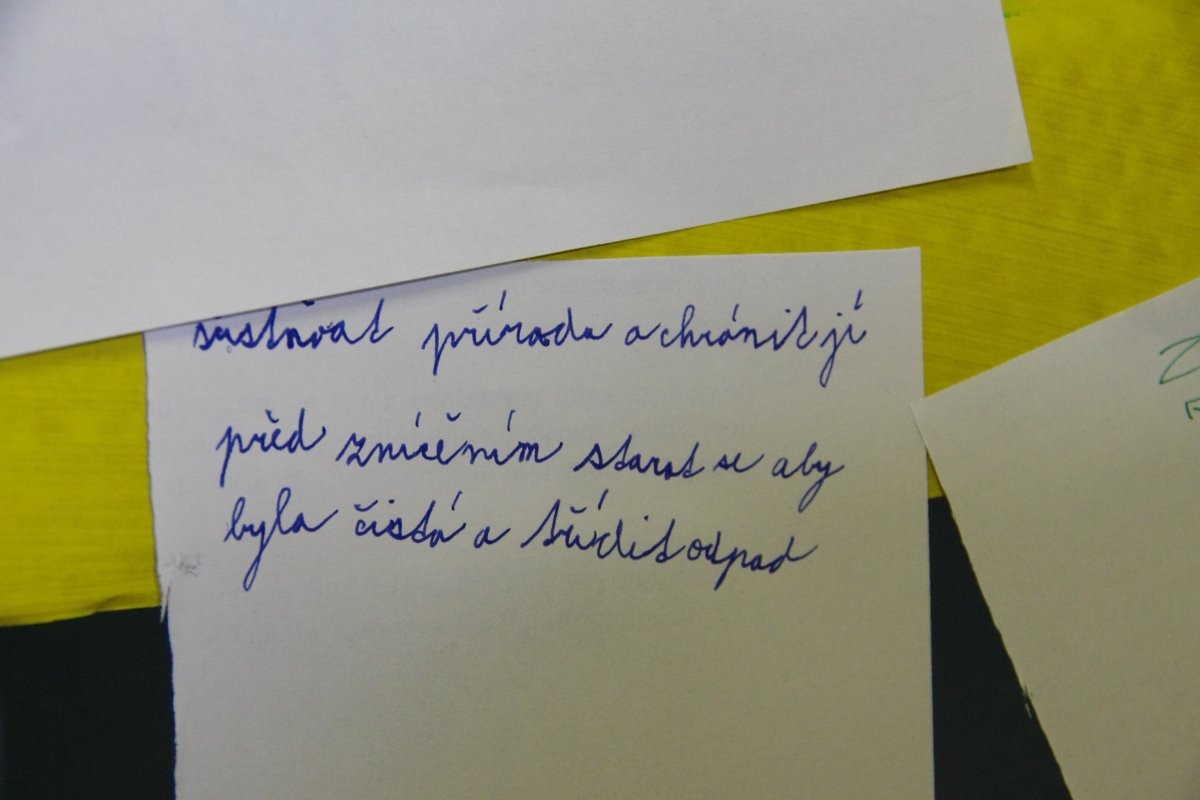 přírodu a chránit jí
před zníčěním starat se aby
byla čistá a třídit odpad